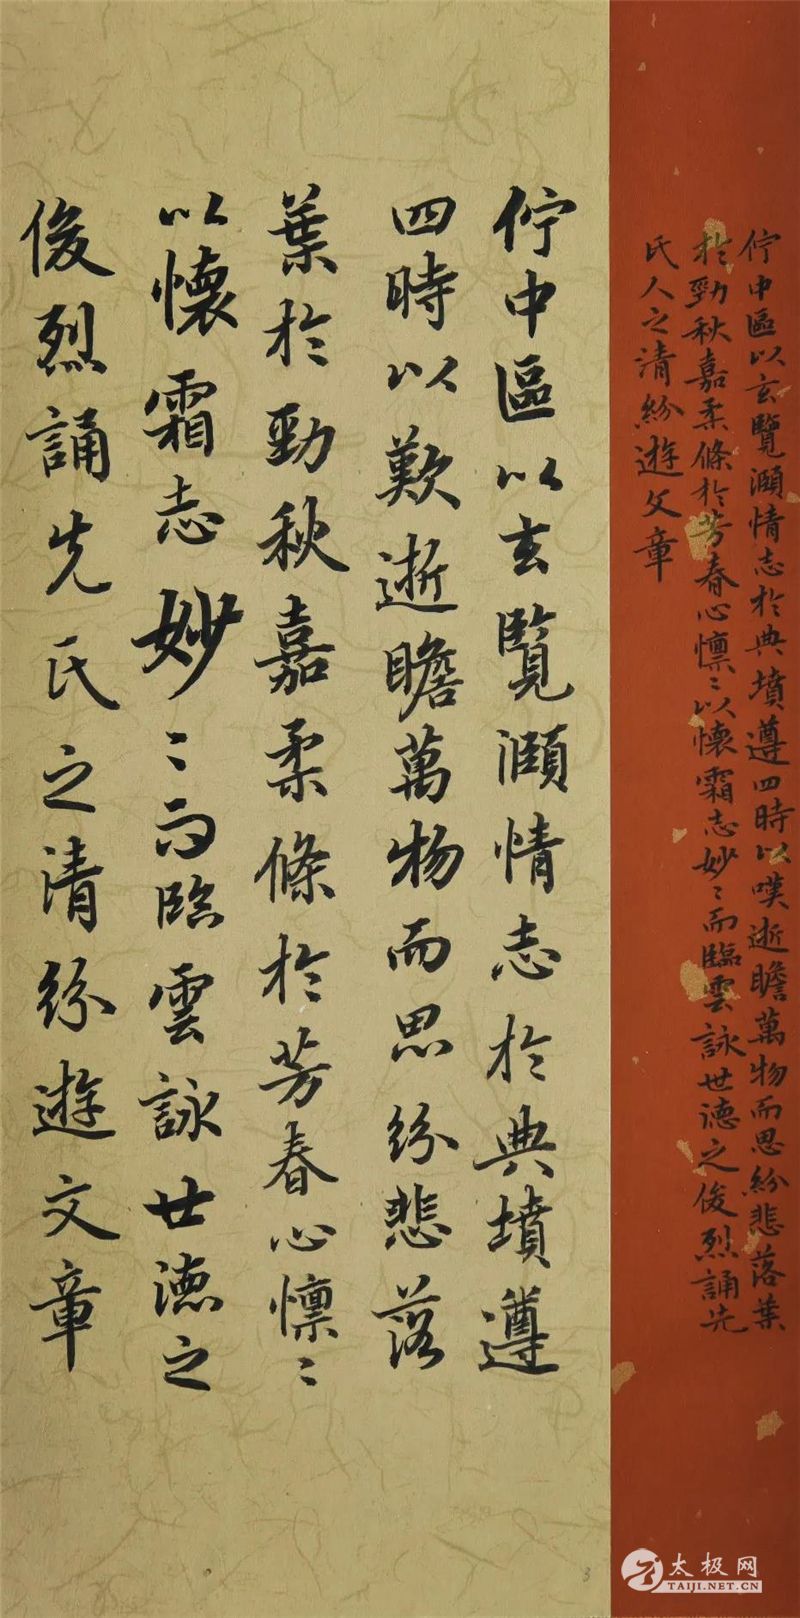 佇中區以玄覽頤情志於典墳遵四時以嘆逝瞻萬物而思紛悲落葉
於勁秋嘉柔條於芳春心懍〻以懷霜志妙〻而臨雲詠世德之俊烈誦先
氏人之清紛遊文章
佇中區以玄覽頤情志於典墳遵
四時以歎逝瞻萬物而思紛悲落
葉於勁秋嘉柔條於芳春心懍〻
以懷霜志妙〻而臨雲詠世德之
俊烈誦先氏之清紛遊文章
3
太极网
TAIJI.NET.CN